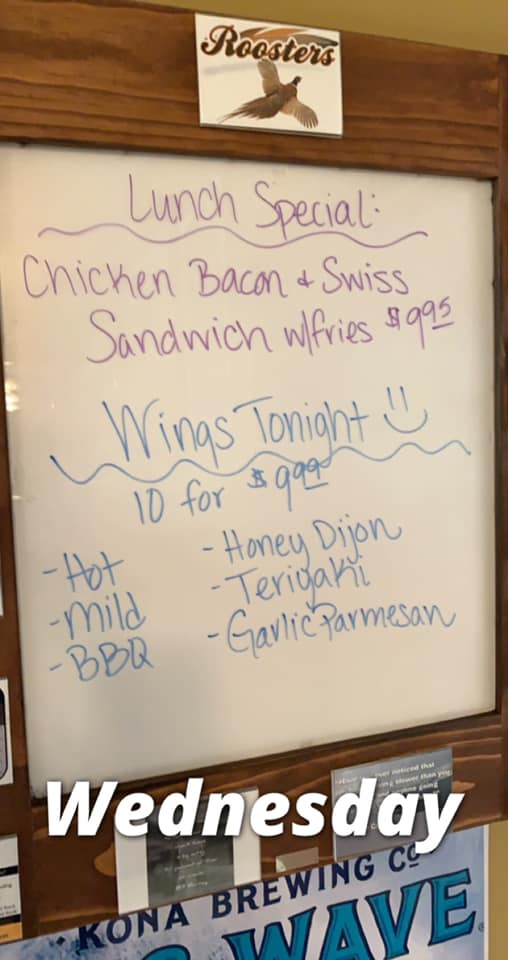 Roosters
Lunch Special:
Chicken Bacon + Swiss
Sandwich w/fries $9.95
Wings Tonight
10 for $9.99
- Hot
- Mild
- BBQ
- Honey Dijon
- Teriyaki
- Garlic Parmesan
ever noticed that
slower than you
going
Wednesday
KONA BREWING Co
WAVE